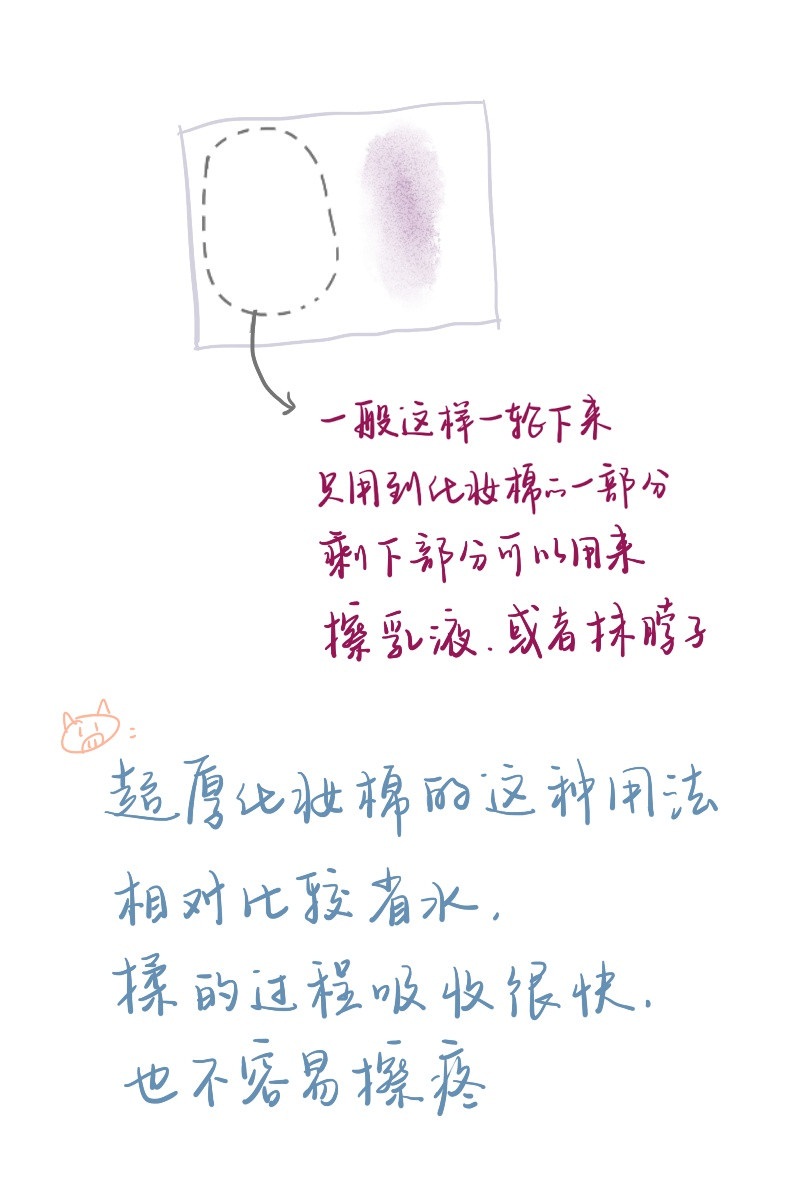 一般这样一轮下来
只用到化妆棉的一部分
剩下部分可以用来
擦乳液.或者抹脖子
:
超厚化妆棉的这种用法
相对比较省水,
揉的过程吸收很快.
也不容易擦疼